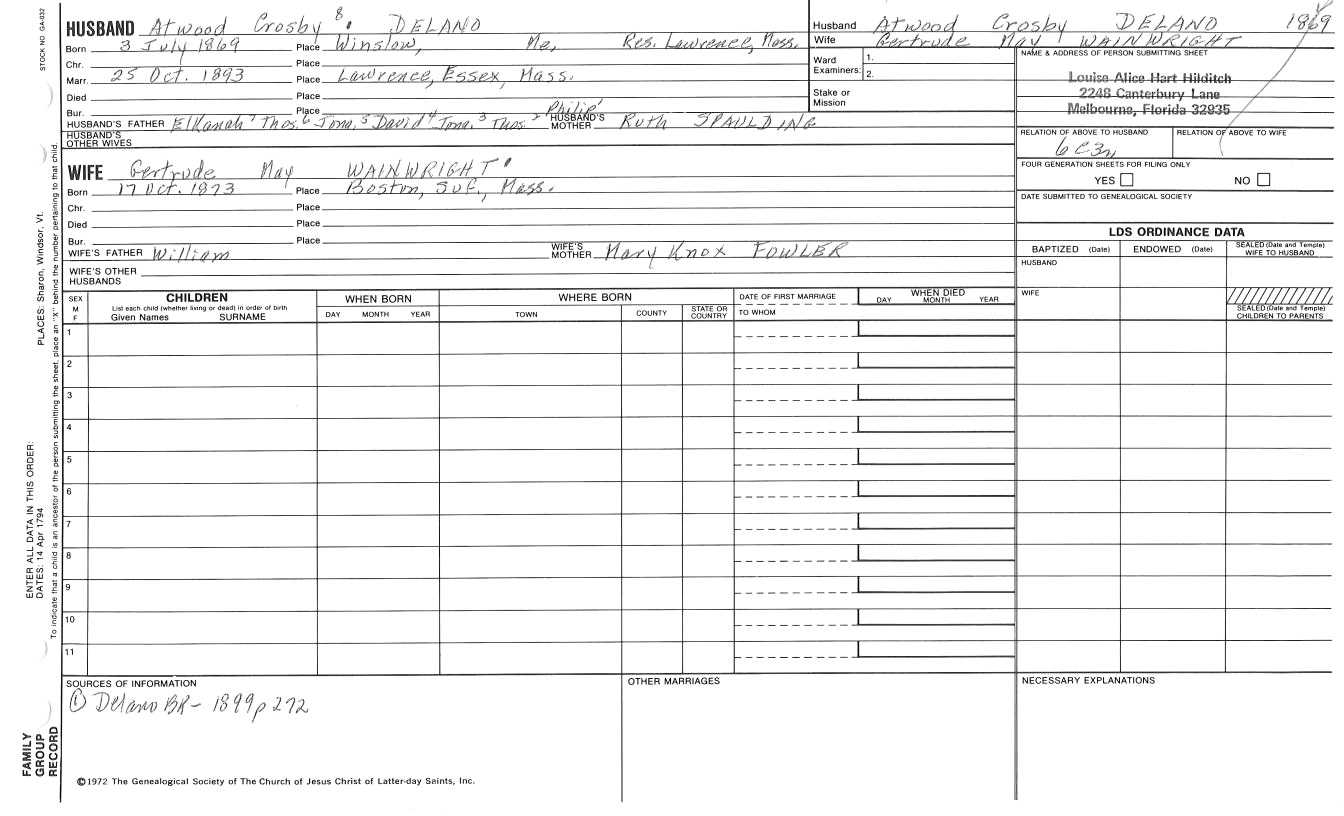 STOCK NO GA-032
HUSBAND Atwood Crosby 8 DELANO
Born 3 July 1869 Place Winslow, Me, Res. Lawrence, Mass.
Chr. Place
Marr. 25 Oct. 1893 Place Lawrence, Essex, Mass.
Died Place
Bur. Place
HUSBAND'S FATHER Elkanah 7 Thos. 6 Jona. 5 David 4 Jona. 3 Thos. 2 Philip 1 HUSBAND'S MOTHER Ruth SPAULDING
HUSBAND'S OTHER WIVES
WIFE Gertrude May WAINWRIGHT
Born 17 Oct. 1873 Place Boston, Suf., Mass.
Chr. Place
Died Place
Bur. Place
WIFE'S FATHER William WIFE'S MOTHER Mary Knox FOWLER
WIFE'S OTHER HUSBANDS
Husband Atwood Crosby DELANO 1869
Wife Gertrude May WAINWRIGHT
Ward Examiners: 1.
2.
Stake or Mission
NAME & ADDRESS OF PERSON SUBMITTING SHEET
Louise Alice Hart Hilditch
2248 Canterbury Lane
Melbourne, Florida 32935
RELATION OF ABOVE TO HUSBAND RELATION OF ABOVE TO WIFE
6C3R
FOUR GENERATION SHEETS FOR FILING ONLY
YES NO
DATE SUBMITTED TO GENEALOGICAL SOCIETY
LDS ORDINANCE DATA
BAPTIZED (Date) ENDOWED (Date) SEALED (Date and Temple) WIFE TO HUSBAND
HUSBAND
WIFE
SEALED (Date and Temple) CHILDREN TO PARENTS
SEX M F
CHILDREN
List each child (whether living or dead) in order of birth
Given Names SURNAME
WHEN BORN
DAY MONTH YEAR
WHERE BORN
TOWN COUNTY STATE OR COUNTRY
DATE OF FIRST MARRIAGE
TO WHOM
WHEN DIED
DAY MONTH YEAR
1
2
3
4
5
6
7
8
9
10
11
SOURCES OF INFORMATION
① Delano BR- 1899 p 272
OTHER MARRIAGES
NECESSARY EXPLANATIONS
©1972 The Genealogical Society of The Church of Jesus Christ of Latter-day Saints, Inc.
FAMILY GROUP RECORD
ENTER ALL DATA IN THIS ORDER:
DATES: 14 Apr 1794 PLACES: Sharon, Windsor, Vt.
To indicate that a child is an ancestor of the person submitting the sheet, place an "X" behind the number pertaining to that child.